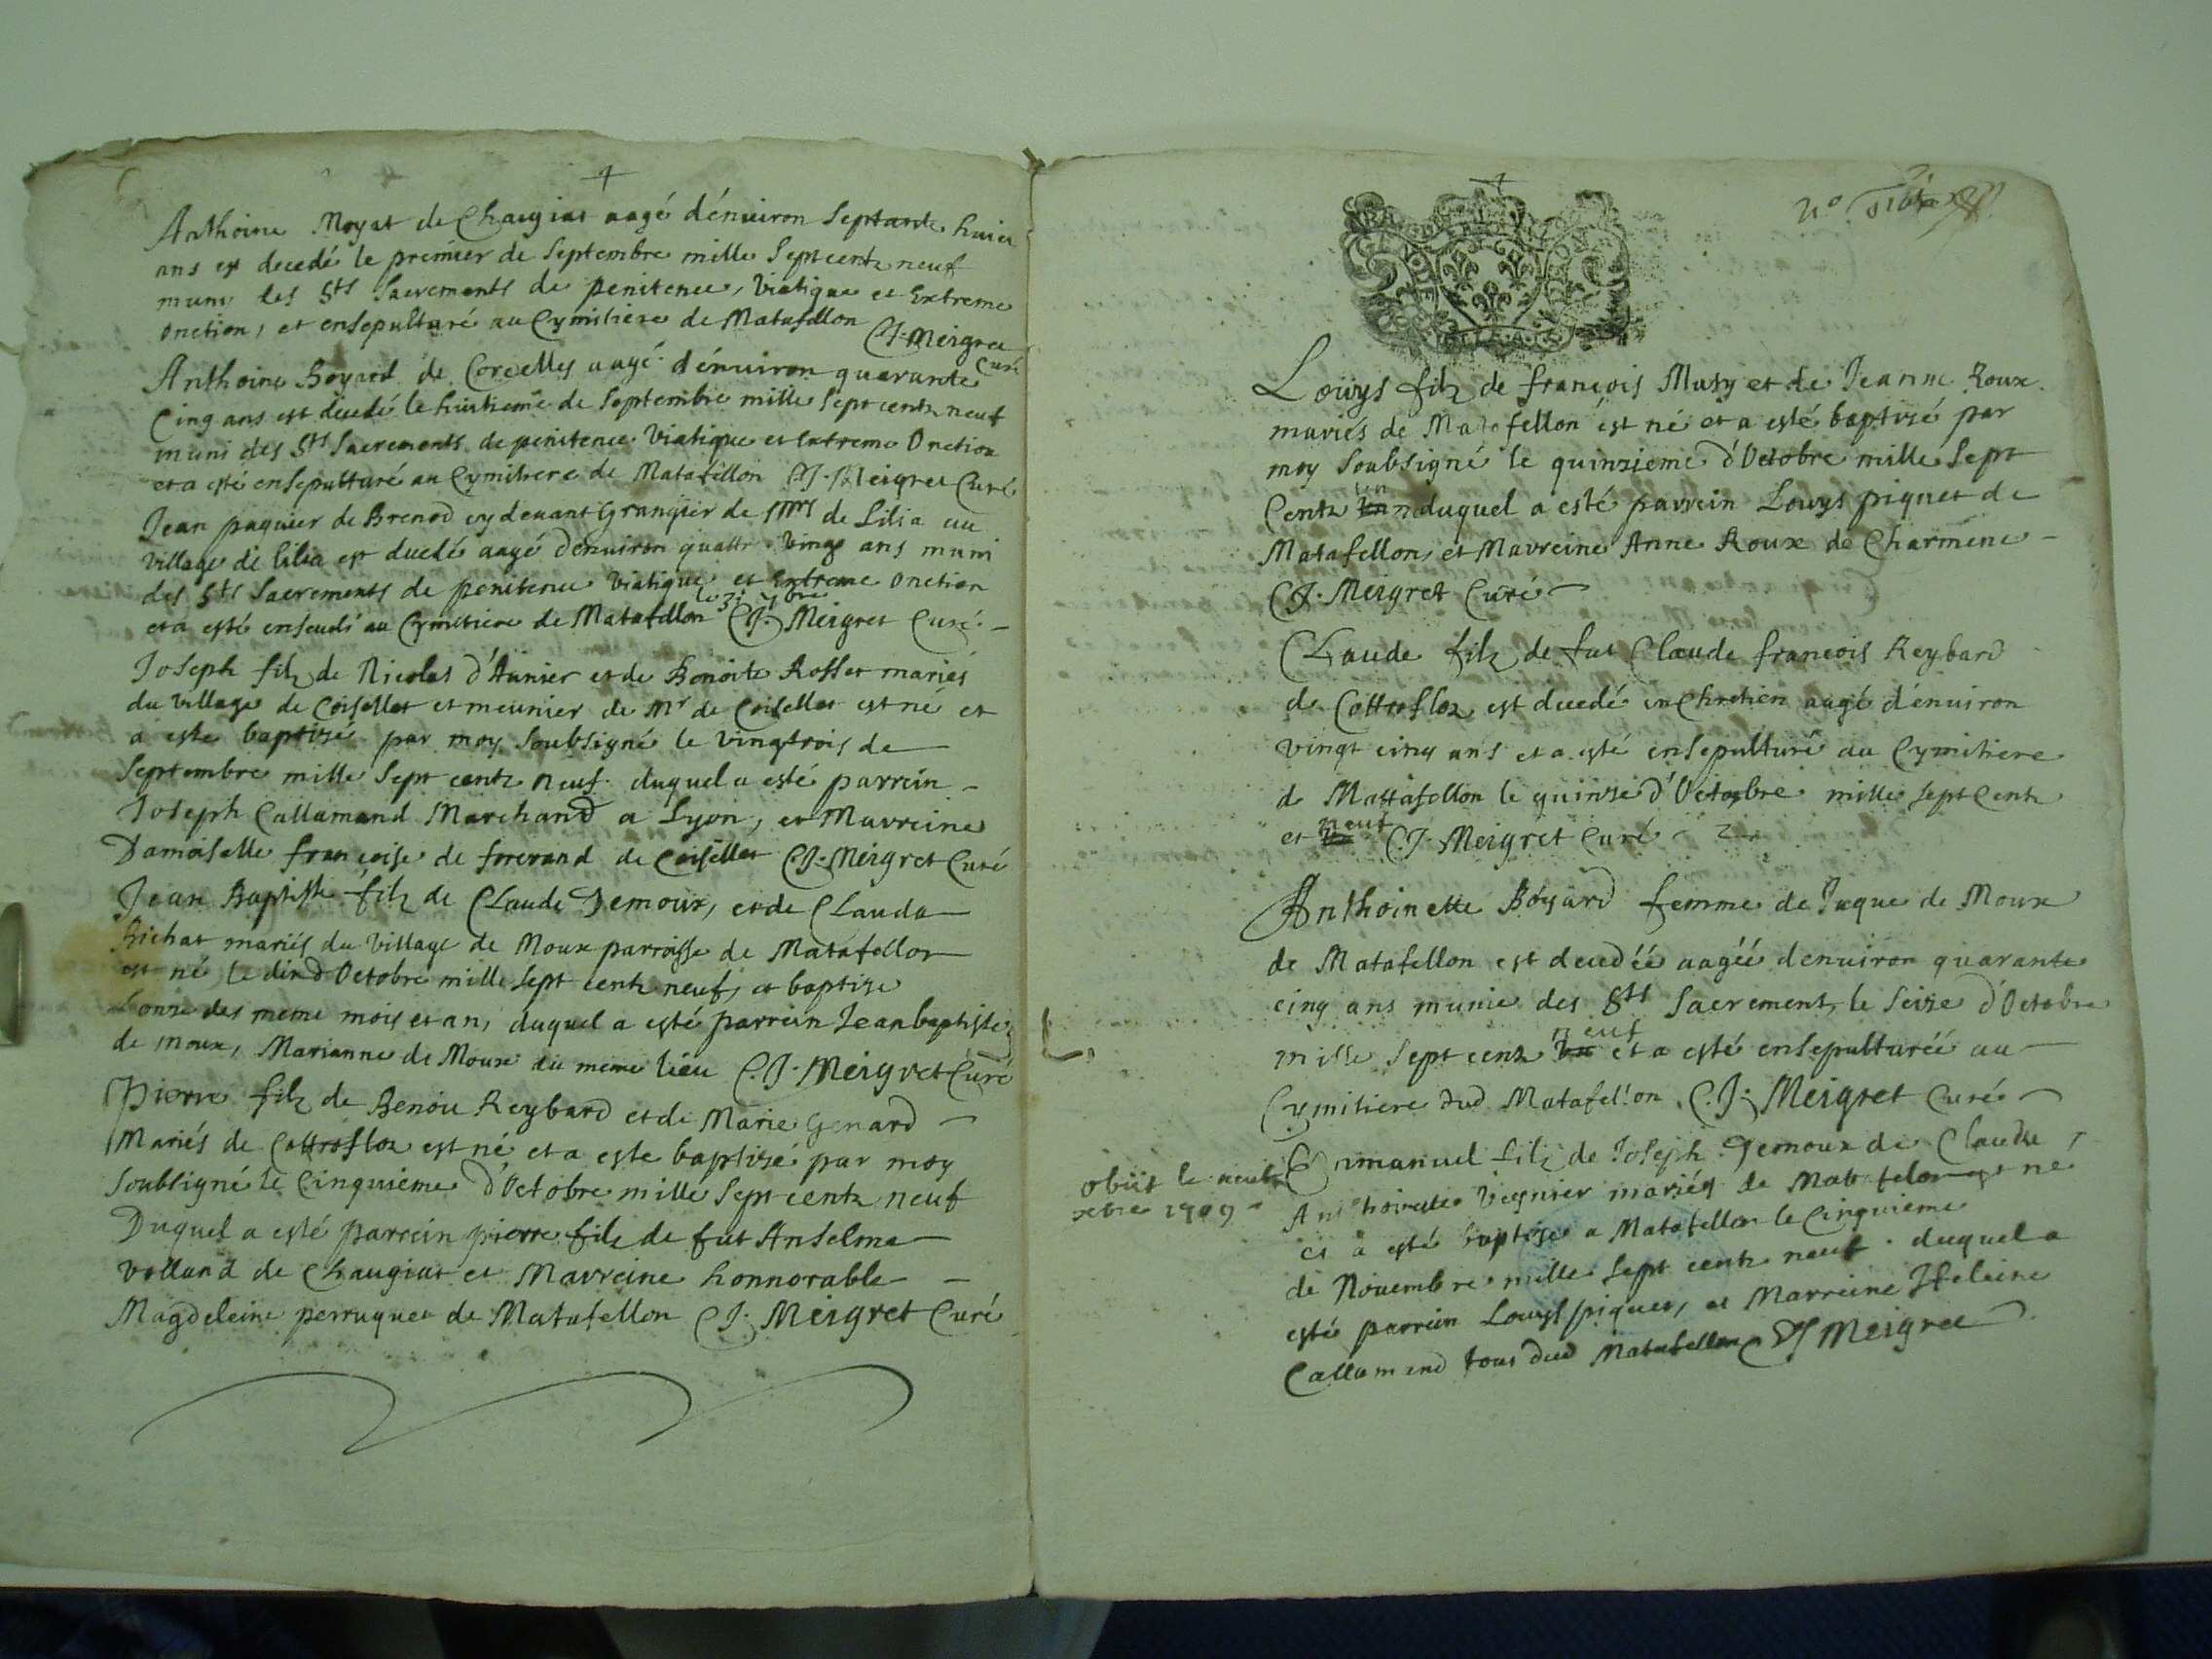 Anthoine Moyat de Chaugiat aagé d'énuiron Septante huict
ans est decedé le premier de Septembre mille Sept centz neuf
muni des Sts Sacrements de penitence, Viatique et Extreme
onction, et ensepulturé au Cymitiere de Matafellon
C.J. Meigret
Curé
Anthoine Boyard de Corcelles aagé d'énuiron quarante
Cinq ans est décedé le huitieme de Septembre mille Sept centz neuf
muni des Sts Sacrements de penitence Viatique et Extreme Onction
et a esté ensepulturé au Cymitiere de Matafellon C.J. Meigret Curé
Jean paquier de Brenod cy deuant Grangier de Mrs de Lilia au
Village de Lilia est decedé aagé d'enuiron quattre Vingt ans muni
des Sts Sacrements de penitence Viatique et Extreme onction
le 3e 7bre
et a esté enseueli au Cymitiere de Matafellon C.J. Meigret Curé
Joseph filz de Nicolas d'Aunier et de Benoite Rosset mariés
du Village de Coisellet et meunier de Mr de Coisellet est né et
a este baptizé par moy Soubsigné le Vingtrois de
Septembre mille Sept centz neuf duquel a esté parrein
Joseph Callamand Marchand a Lyon, et Marreine
Damoiselle françoise de forcrand de Coisellet C.J. Meigret Curé
Jean Baptiste filz de CLaude Demoux, et de CLauda
Richat mariés du Village de Moux parroisse de Matafellon
est né le dix d Octobre mille sept centz neuf, et baptize
L'onze des meme mois et an, duquel a esté parrein Jean baptiste
de moux, Marianne de Moux du meme lieu C.J. Meigret Curé
Pierre filz de Benoit Reybard et de Marie Genard
Mariés de Cottrofloz est né et a este baptizé par moy
Soubsigné le Cinquieme d'Octobre mille Sept centz neuf
Duquel a esté parrein pierre filz de fut Anselme
Volland de Chaugiat et Marreine honnorable
Magdeleine perruquet de Matafellon C.J. Meigret Curé
No
Loüys filz de françois Musy et de Jeanne Roux
mariés de Matafellon est né et a esté baptizé par
moy Soubsigné le quinzieme d'Octobre mille Sept
Centz duquel a esté parrein Louys piquet de
Matafellon, et Marreine Anne Roux de Charmene
C.J. Meigret Curé
CLaude filz de fut Claude françois Reybard
de Cottrofloz est decedé en Chretien aagé d'énuiron
vingt cinq ans et a esté ensepulturé au Cymitiere
de Mattafellon le quinze d'Octobre mille sept Centz
neuf
et C.J. Meigret Curé
Anthoinette Boyard femme de Jaque de Moux
de Matafellon est decedéé aagéé d'enuiron quarante
cinq ans munie des Sts Sacrement, le Seize d'Octobre
neuf
mille Sept centz et a esté ensepulturéé au
Cymitiere dud Matafellon C.J. Meigret Curé
Emmanuel filz de Joseph Demoux de Claudre
obiit le neuf
xbre 1709
Anthoinette Vegnier mariés de Matafelon est né
et a esté baptizé a Matafellon le Cinquieme
de Nouembre mille Sept centz neuf duquel a
esté parrein Louys piquet, et Marreine Heleine
Callamand tous dud Matafellon CJ Meigret